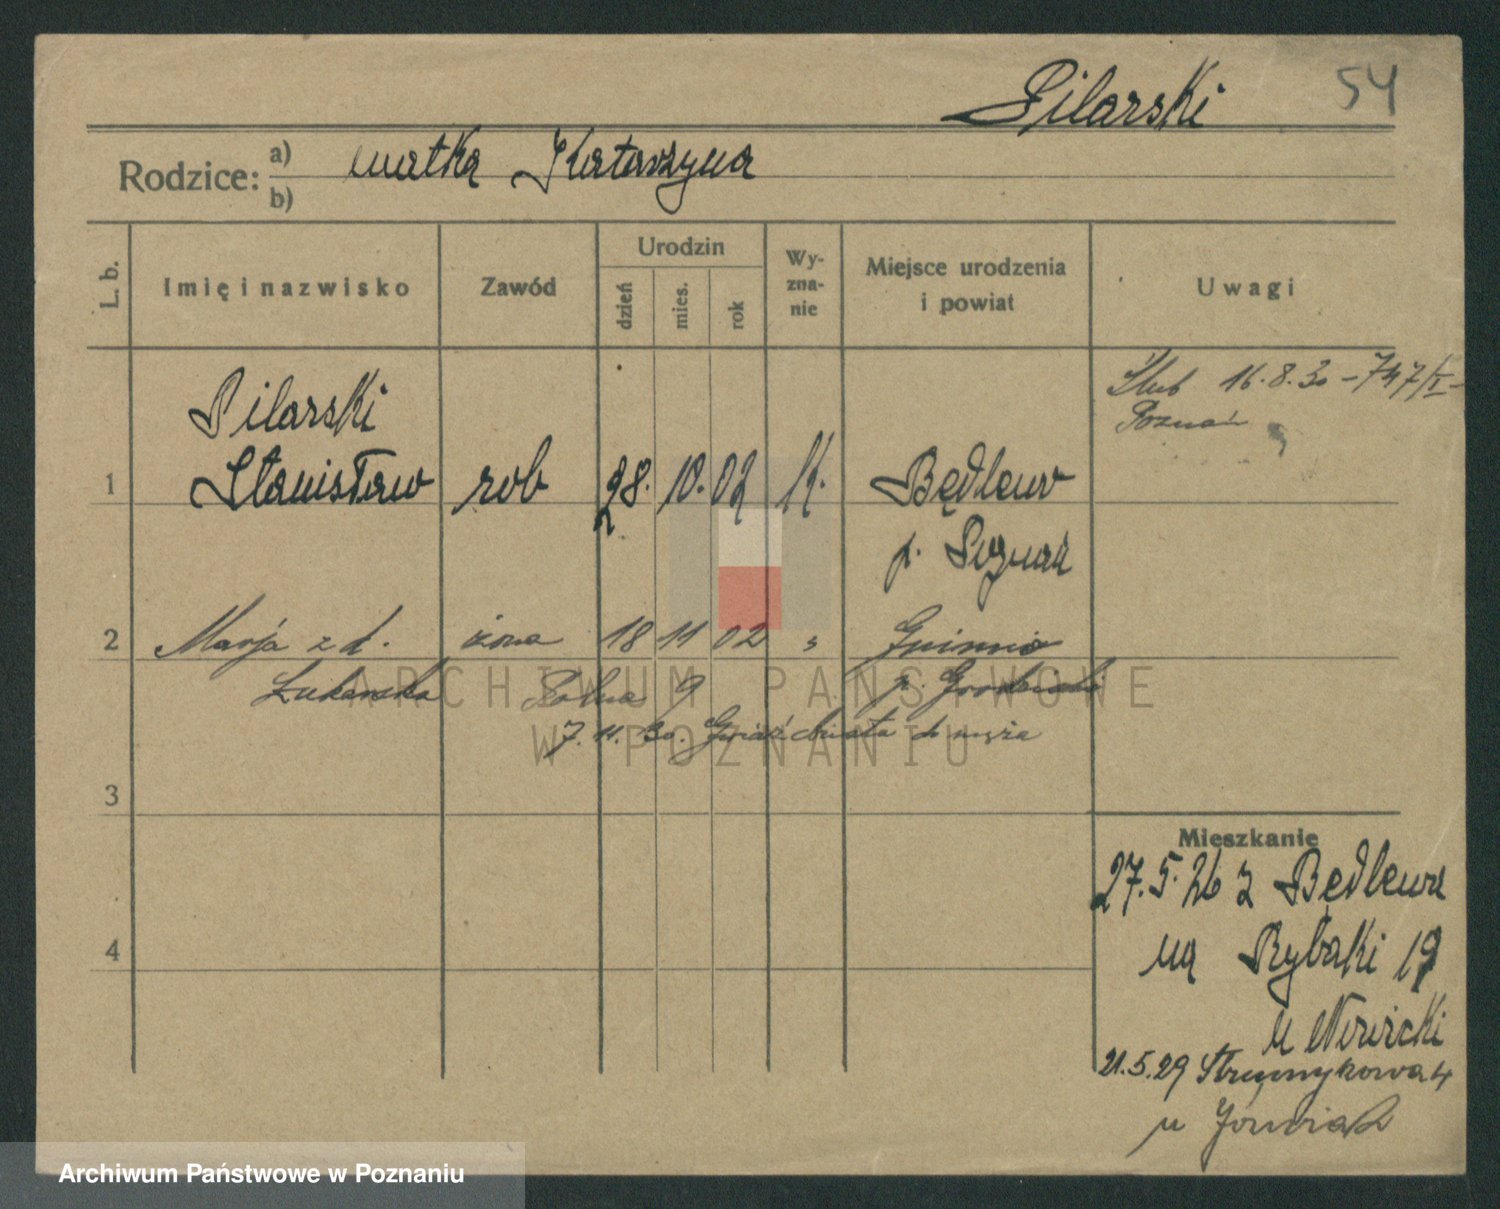 Pilarski 54
Rodzice: a) matka Katarzyna
b)
L. b. Imię i nazwisko Zawód Urodzin dzień mies. rok Wy-zna-nie Miejsce urodzenia i powiat Uwagi
Ślub 16.8.30 – 747/I –
Poznań
Pilarski
1 Stanisław rob 28. 10. 02 k. Będlewo
p. Poznań
2 Marja z d. żona 18 11 02 "
Polna 9 p.
7.11.30. do męża
ARCHIWUM PAŃSTWOWE
W POZNANIU
3
Mieszkanie
27.5.26 z Będlewa
4
na Rybaki 19
u Nowicki
21.5.29 Strumykowa 4
u Jóźwiak
Archiwum Państwowe w Poznaniu